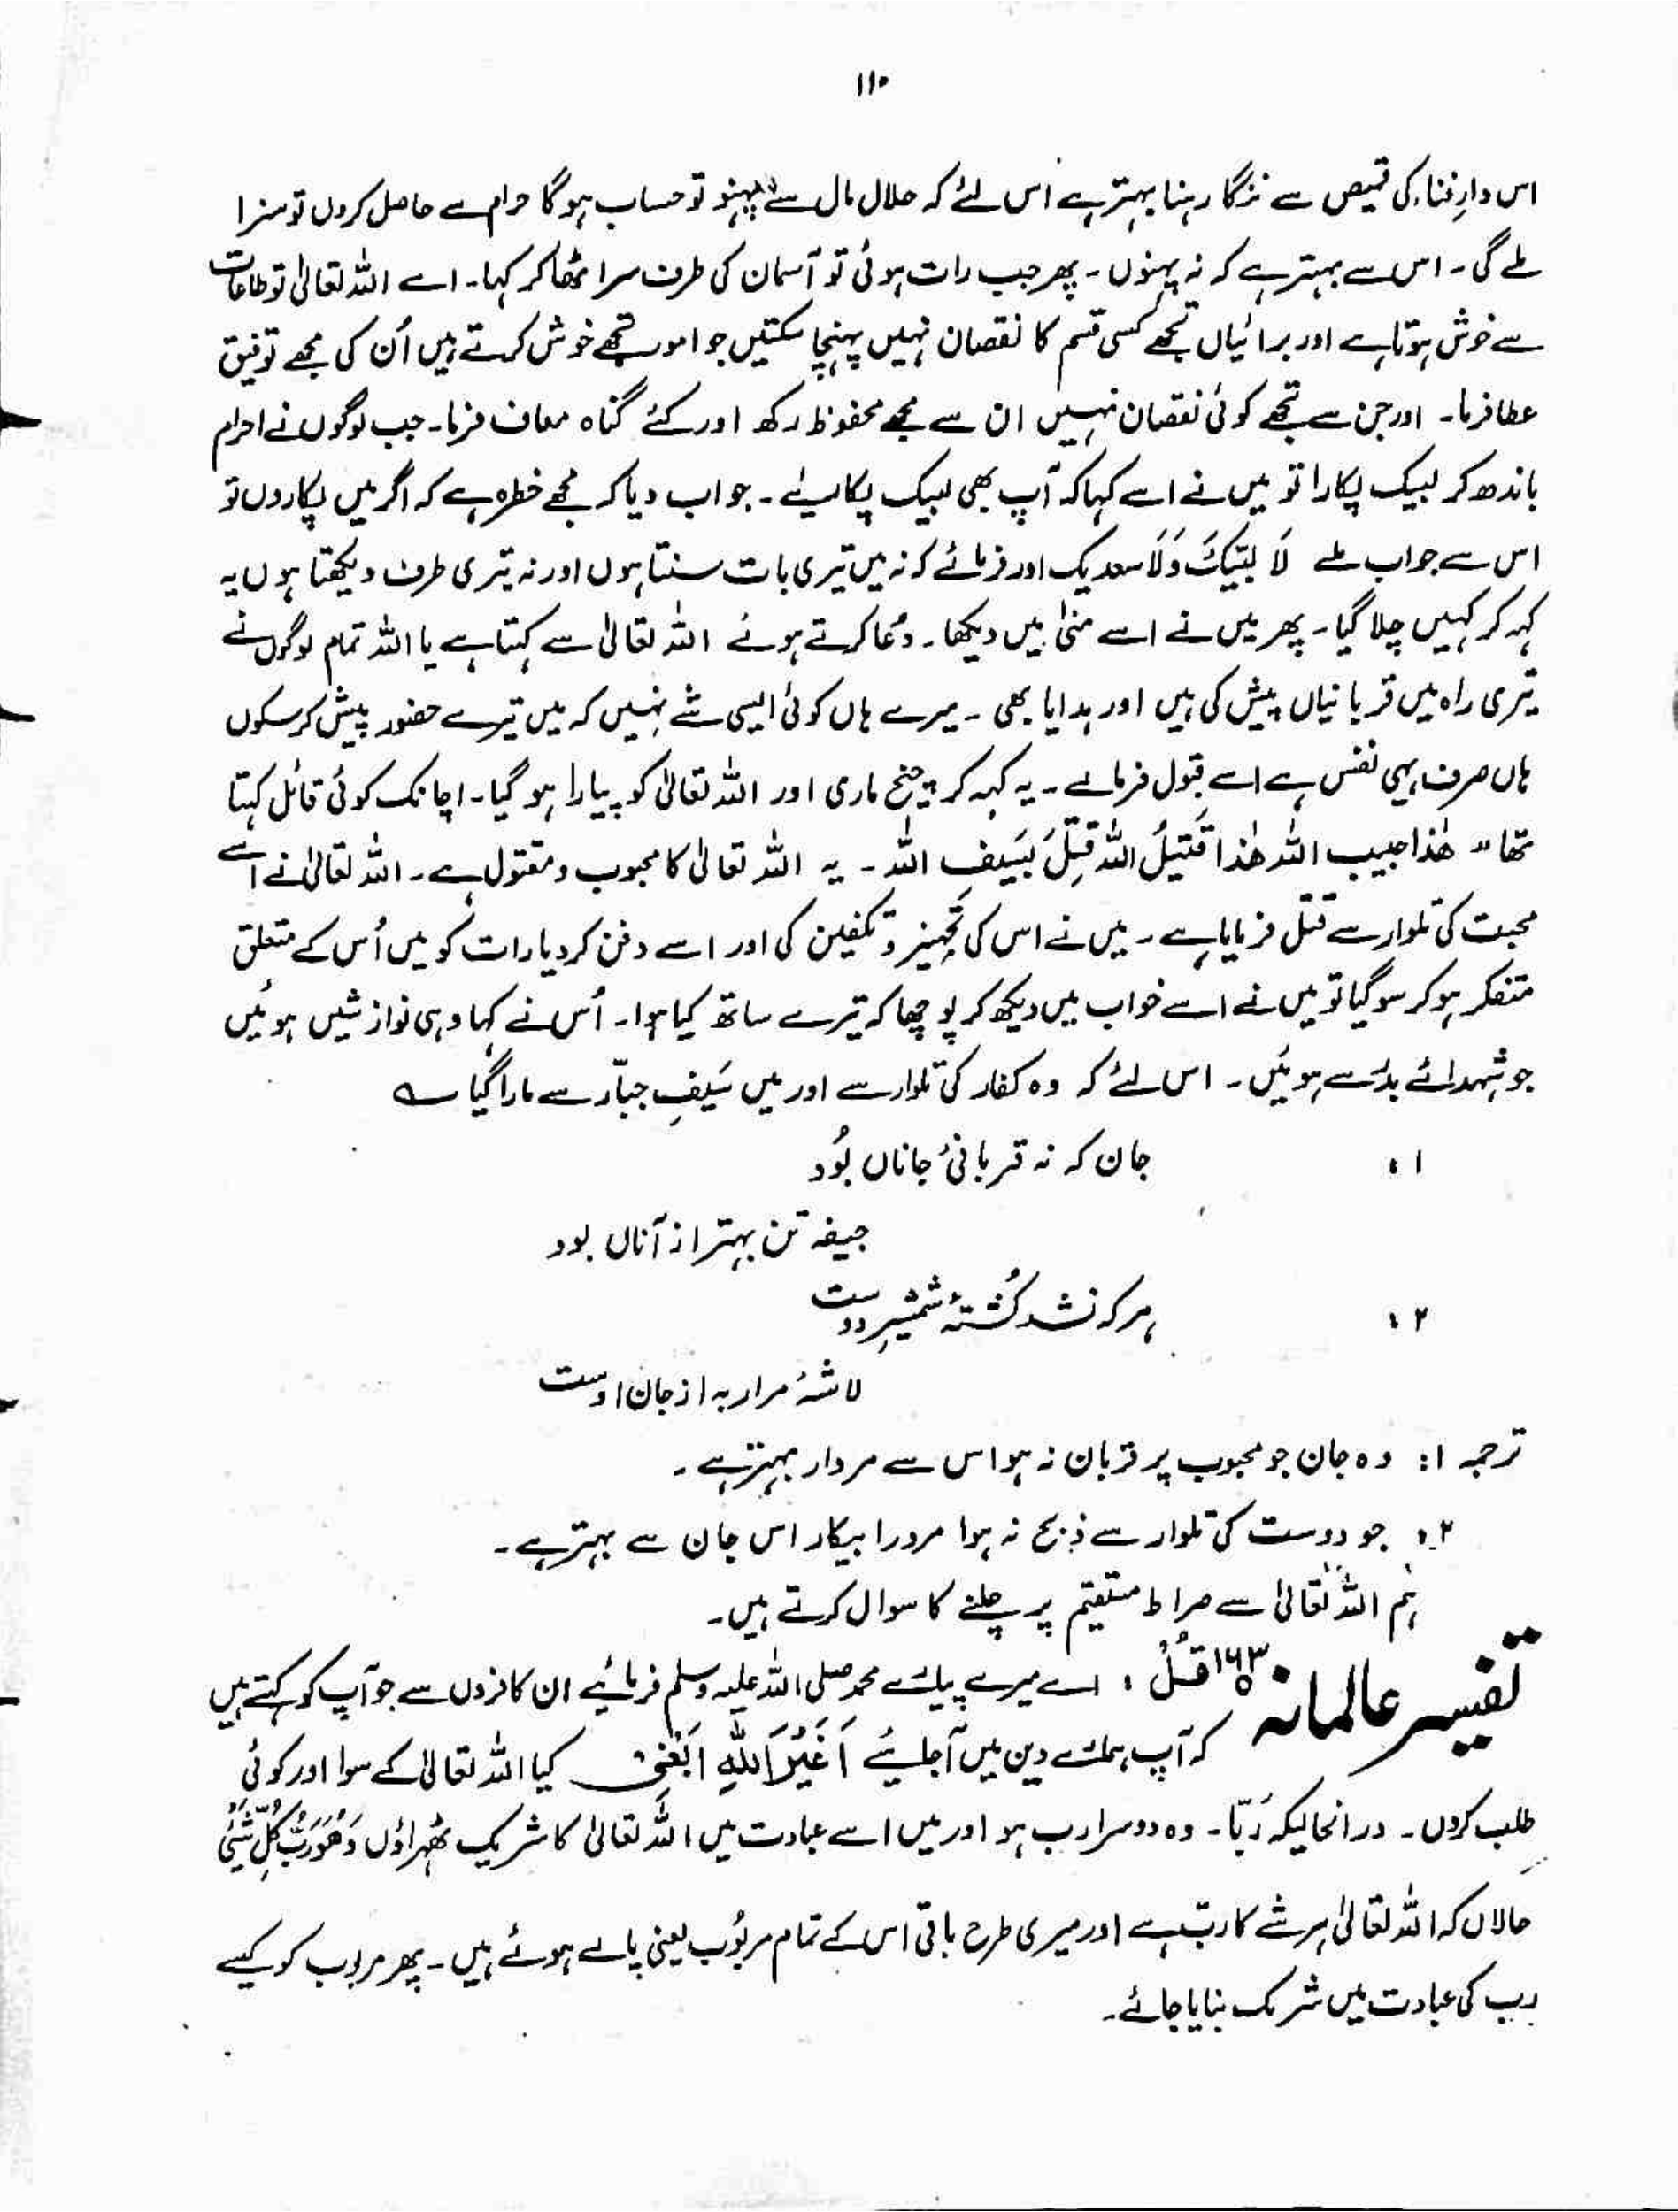 ۱۱۰
اس دارِ فناء کی قمیص سے ننگا رہنا بہتر ہے اس لئے کہ حلال مال سے پہنو تو حساب ہوگا حرام سے حاصل کروں تو سزا
ملے گی۔ اس سے بہتر ہے کہ نہ پہنوں۔ پھر جب رات ہوئی تو آسمان کی طرف سر اٹھا کر کہا۔ اے اللہ تعالیٰ تو طاعات
سے خوش ہوتا ہے اور برائیاں تجھے کسی قسم کا نقصان نہیں پہنچا سکتیں جو امور تجھے خوش کرتے ہیں اُن کی مجھے توفیق
عطا فرما۔ اور جن سے تجھے کوئی نقصان نہیں ان سے مجھے محفوظ رکھ اور کئے گناہ معاف فرما۔ جب لوگوں نے احرام
باندھ کر لبیک پکارا تو میں نے اسے کہا کہ آپ بھی لبیک پکاریئے۔ جواب دیا کہ مجھے خطرہ ہے کہ اگر میں پکاروں تو
اس سے جواب ملے لَا لَبَّیْکَ وَلَا سعدیک اور فرمائے کہ نہ میں تیری بات سنتا ہوں اور نہ تیری طرف دیکھتا ہوں یہ
کہہ کر کہیں چلا گیا۔ پھر میں نے اسے منیٰ میں دیکھا۔ دُعا کرتے ہوئے اللہ تعالیٰ سے کہتا ہے یا اللہ تمام لوگوں نے
تیری راہ میں قربانیاں پیش کی ہیں اور ہدایا بھی۔ میرے ہاں کوئی ایسی شے نہیں کہ میں تیرے حضور پیش کرسکوں
ہاں صرف یہی نفس ہے اسے قبول فرمالے۔ یہ کہہ کر چیخ ماری اور اللہ تعالیٰ کو پیارا ہو گیا۔ اچانک کوئی قائل کہتا
تھا" ھٰذا حبیب اللہ ھٰذا قَتِیْلُ اللہ قُتِلَ بِسَیفِ اللہ۔ یہ اللہ تعالیٰ کا محبوب و مقتول ہے۔ اللہ تعالیٰ نے اُسے
محبت کی تلوار سے قتل فرمایا ہے۔ میں نے اس کی تجہیز و تکفین کی اور اسے دفن کر دیا رات کو میں اُس کے متعلق
متفکر ہو کر سو گیا تو میں نے اسے خواب میں دیکھ کر پوچھا کہ تیرے ساتھ کیا ہوا۔ اُس نے کہا وہی نوازشیں ہوئیں
جو شہدائے بدر سے ہوئیں۔ اس لئے کہ وہ کفار کی تلوار سے اور میں سَیفِ جبّار سے مارا گیا ؎
۱: جان کہ نہ قربانیٔ جاناں بُود
جیفہ تن بہتر از آناں بود
۲: ہر کہ نشد کُشتۂ شمشیرِ دوست
لاشۂ مرار بہ از جان اوست
ترجمہ ۱: وہ جان جو محبوب پر قربان نہ ہو اس سے مردار بہتر ہے۔
۲: جو دوست کی تلوار سے ذبح نہ ہوا مردرا بیکار اس جان سے بہتر ہے۔
ہم اللہ تعالیٰ سے صراط مستقیم پر چلنے کا سوال کرتے ہیں۔
تفسیر عالمانہ ۱۶۳ قُلْ: اے میرے پیارے محمد صلی اللہ علیہ وسلم فرمائیے ان کافروں سے جو آپ کو کہتے ہیں
کہ آپ ہمارے دین میں آجائیے اَغَیْرَ اللّٰہِ اَبْغِیْ کیا اللہ تعالیٰ کے سوا اور کوئی
طلب کروں۔ درانحالیکہ رَبًّا۔ وہ دوسرا رب ہو اور میں اسے عبادت میں اللہ تعالیٰ کا شریک ٹھہراؤں وَھُوَ رَبُّ کُلِّ شَیْءٍ
حالاں کہ اللہ تعالیٰ ہر شے کا ربّ ہے اور میری طرح باقی اس کے تمام مربُوب یعنی پالے ہوئے ہیں۔ پھر مربوب کو کیسے
رب کی عبادت میں شریک بنایا جائے۔